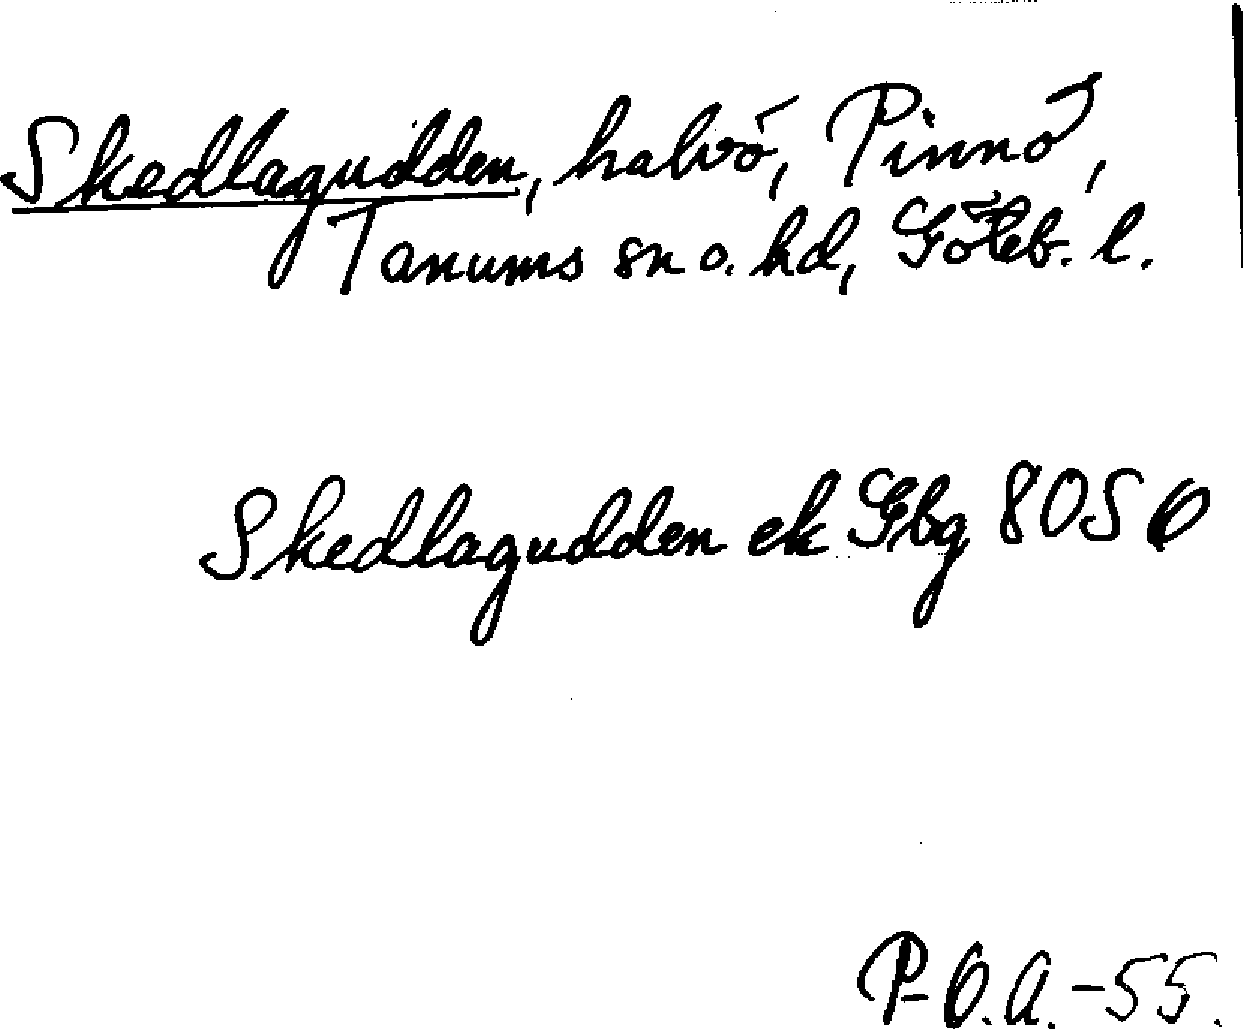 Skedlagudden, halvö, Pinnö,
Tanums sn o. hd, Göteb. l.
Skedlagudden ek Gbg 8050
P-O.A.-55.